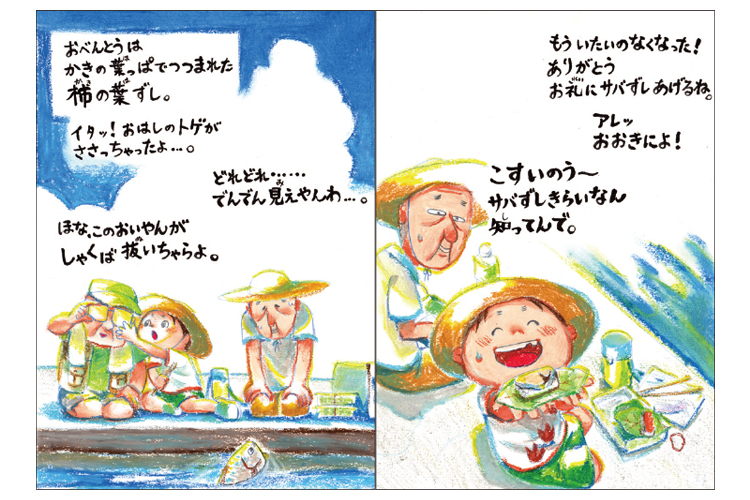 おべんとうは
かきの葉っぱでつつまれた
柿の葉ずし。
イタッ！おはしのトゲが
ささっちゃったよ…。
どれどれ……
でんでん見えやんわ…。
ほな、このおいやんが
しゃくば抜いちゃらよ。
もういたいのなくなった！
ありがとう
お礼にサバずしあげるね。
アレッ
おおきによ！
こすいのう〜
サバずしきらいなん
知ってんで。